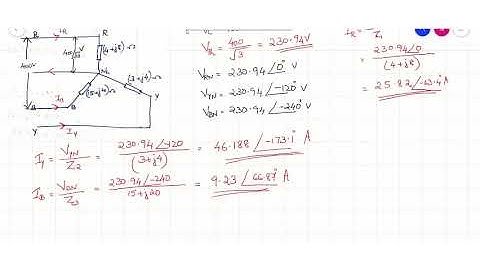 R
I_R
R
400V
(4+j8)Ω
N
(3+j4)Ω
(15+j20)Ω
B
I_B
B
Y
Y
I_Y
V_R = 400/√3 = 230.94V
V_RN = 230.94∠0° V
V_YN = 230.94∠-120° V
V_BN = 230.94∠-240° V
= 230.94∠0/(4+j8)
= 25.82∠-63.4° A
I_Y = V_YN/Z_2 = 230.94∠-120/(3+j4) = 46.188∠-173.1° A
I_B = V_BN/Z_3 = 230.94∠-240/15+j20 = 9.23∠66.87° A